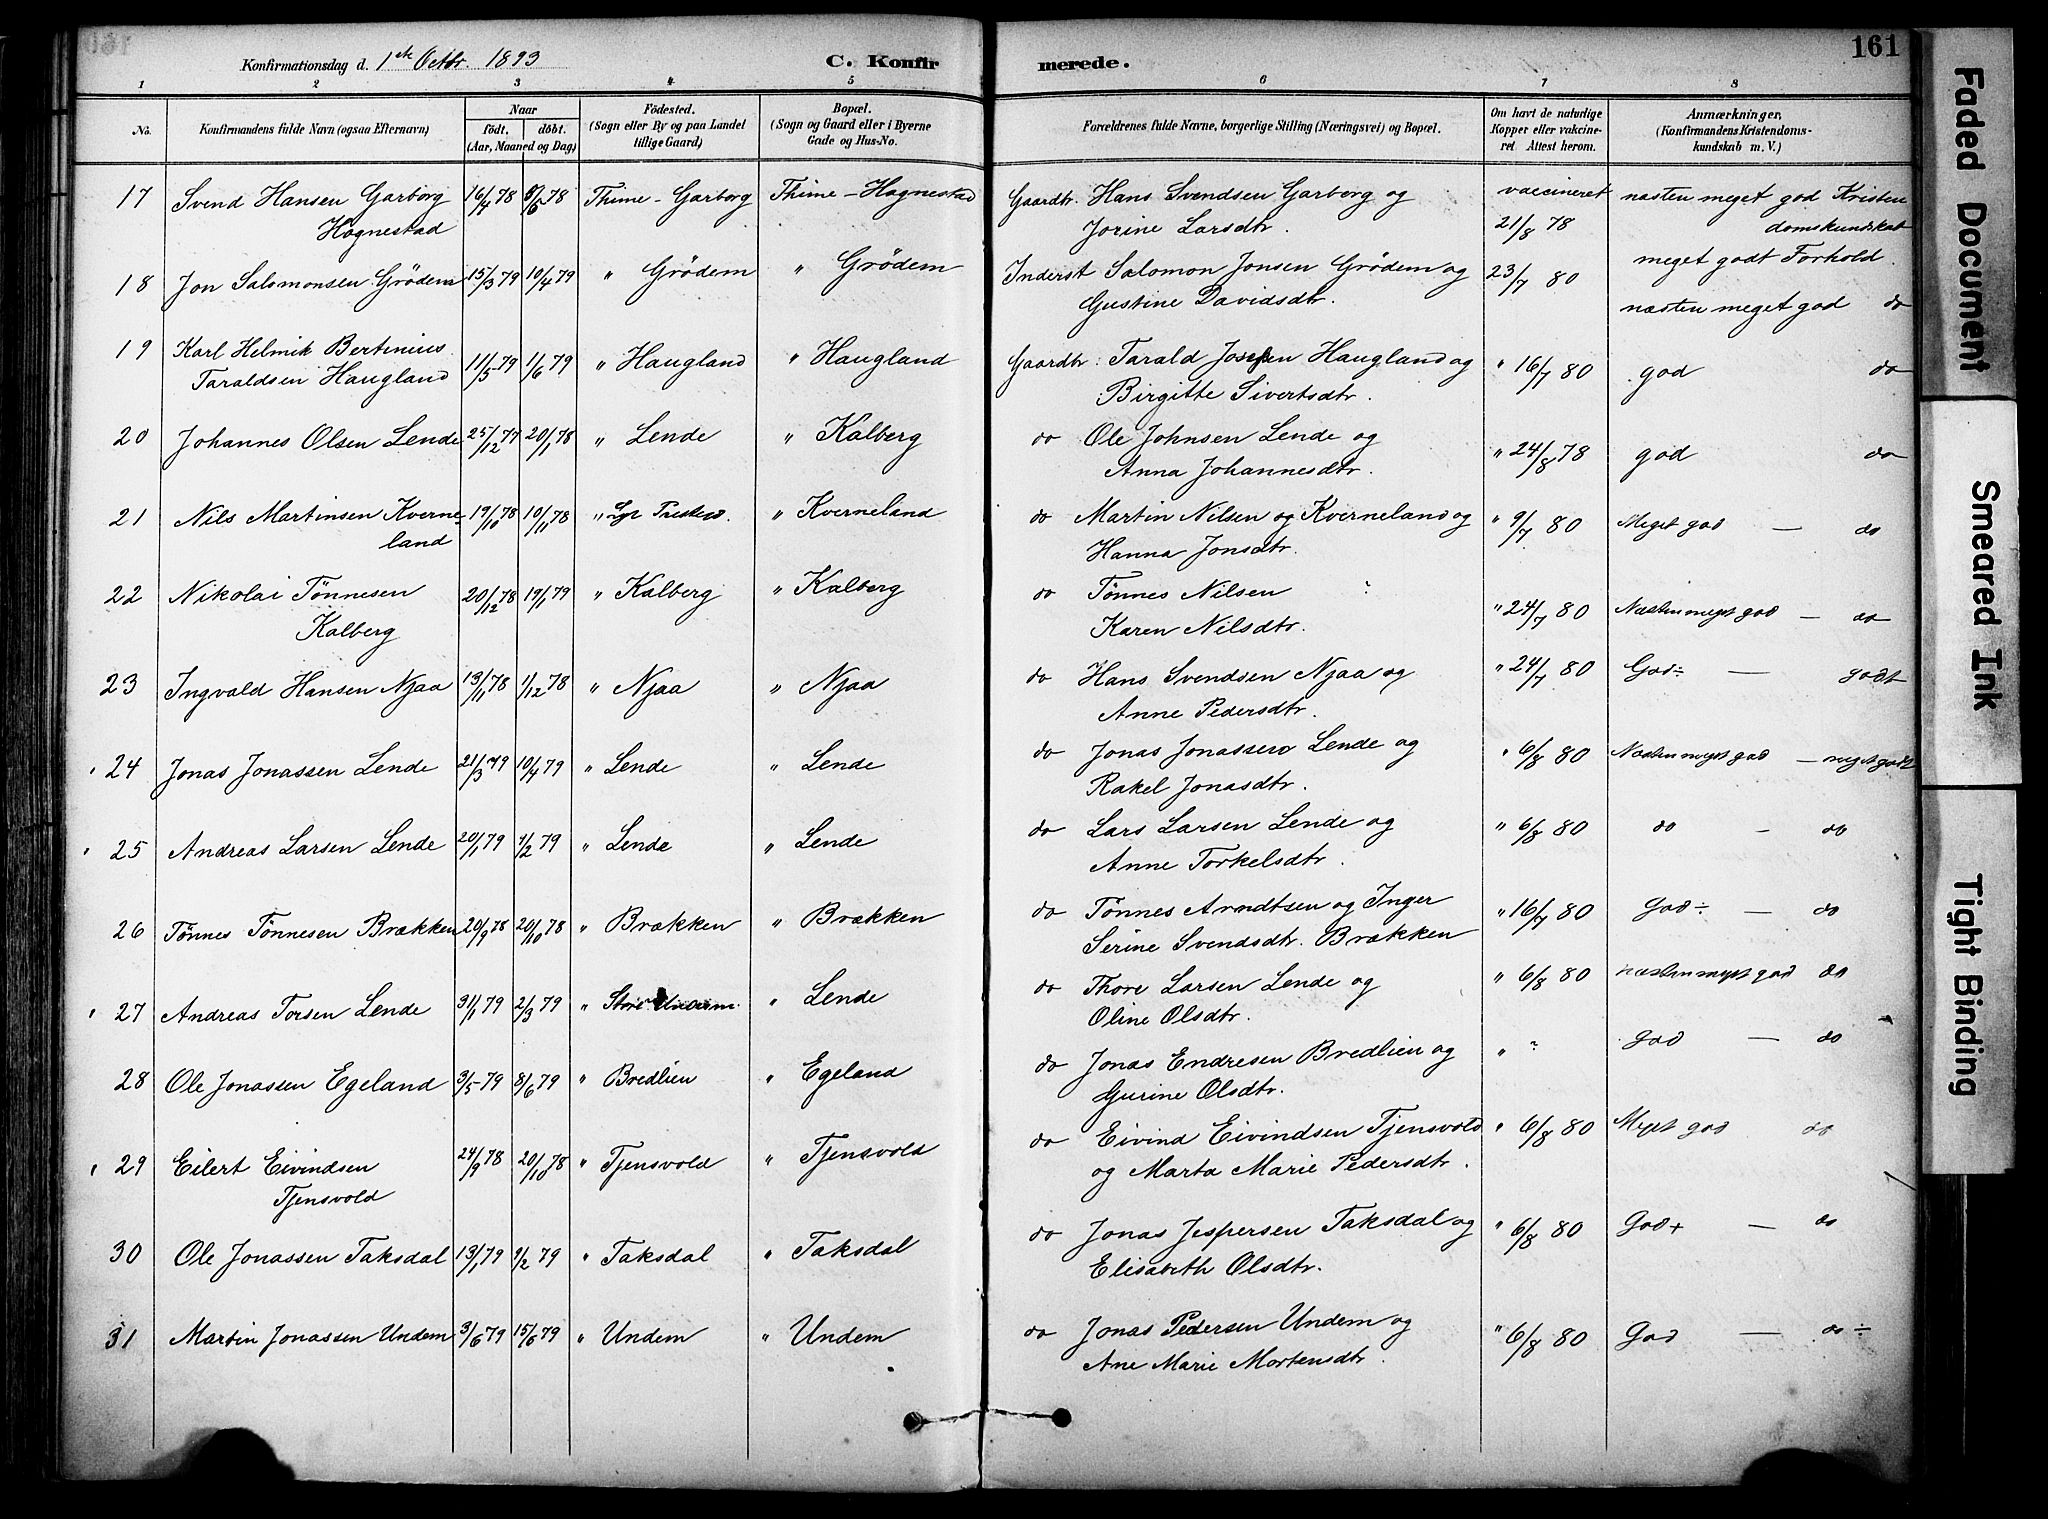 Konfirmationsdag d. 1ste Octbr. 1893 C. Konfirmerede. 161
1 2 3 4 5 6 7 8
No. Konfirmandens fulde Navn (ogsaa Efternavn) Naar födt. döbt. (Aar, Maaned og Dag) Födested. (Sogn eller By og paa Landet tillige Gaard) Bopæl. (Sogn og Gaard eller i Byerne Gade og Hus-No. Forældrenes fulde Navne, borgerlige Stilling (Næringsvei) og Bopæl. Om havt de naturlige Kopper eller vakcineret Attest herom. Anmærkninger, (Konfirmandens Kristendomskundskab m. V.)
17 Svend Hansen Garborg 16/4 78 6/6 78 Thime - Garborg Thime - Hognestad Gaardbr. Hans Svendsen Garborg og vaccineret næsten meget god Kristen
Hognestad Jorine Larsdtr. 21/8 78 domskundskab
meget godt Forhold.
18 Jon Salomonsen Grödem 15/3 79 10/4 79 " Grödem " Grödem Inderst Salomon Jonsen Grödem og 23/7 80
Gustine Davidsdtr. næsten meget god do
19 Karl Helmik Bertinius 11/5 79 1/6 79 " Haugland " Haugland Gaardbr. Tarald Haugland og " 16/7 80 god do
Taraldsen Haugland Birgitte Sivertsdtr.
20 Johannes Olsen Lende 25/12 77 20/1 78 " Lende " Kalberg do Ole Johnsen Lende og " 24/8 78 god do
Anna Johannesdtr.
21 Nils Martinsen Kverne- 19/10 78 10/11 78 " " Kverneland do Martin Nilsen og Kverneland og " 9/7 80 Meget god — do
land Hanna Jonsdtr.
22 Nikolai Tönnesen 20/12 78 19/1 79 " Kalberg " Kalberg do Tönnes Nilsen " 24/7 80 Næsten meget god — do
Kalberg Karen Nilsdtr.
23 Ingvald Hansen Njaa 13/11 78 1/12 78 " Njaa " Njaa do Hans Svendsen Njaa og " 24/7 80 God÷ — godt
Anne Pedersdtr.
24 Jonas Jonassen Lende 21/3 79 10/4 79 " Lende " Lende do Jonas Jonassen Lende og " 6/8 80 Næsten meget god — meget godt
Rakel Jonasdtr.
25 Andreas Larsen Lende 20/1 79 4/2 79 " Lende " Lende do Lars Larsen Lende og " 6/8 80 do — do
Anne Torkelsdtr.
26 Tönnes Tönnesen Brækken 20/9 78 20/10 78 " Brækken " Brækken do Tönnes Arndtsen og Inger " 16/7 80 God÷ — do
Serine Svendsdtr. Brækken
27 Andreas Torsen Lende 31/1 79 2/3 79 " Store Undem " Lende do Thore Larsen Lende og " 6/8 80 næsten meget god do
Oline Olsdtr.
28 Ole Jonassen Egeland 3/5 79 8/6 79 " Bredlien " Egeland do Jonas Endresen Bredlien og " ? god — do
Gurine Olsdtr.
29 Eilert Eivindsen 24/9 78 20/10 78 " Tjensvold " Tjensvold do Eivind Eivindsen Tjensvold " 6/8 80 Meget god do
Tjensvold og Marta Marie Pedersdtr.
30 Ole Jonassen Taksdal 13/1 79 9/2 79 " Taksdal " Taksdal do Jonas Jespersen Taksdal og " 6/8 80 God+ — do
Elisabeth Olsdtr.
31 Martin Jonassen Undem 3/6 79 15/6 79 " Undem " Undem do Jonas Pedersen Undem og " 6/8 80 God — do ÷
Ane Marie Mortensdtr.
Faded Document
Smeared Ink
Tight Binding